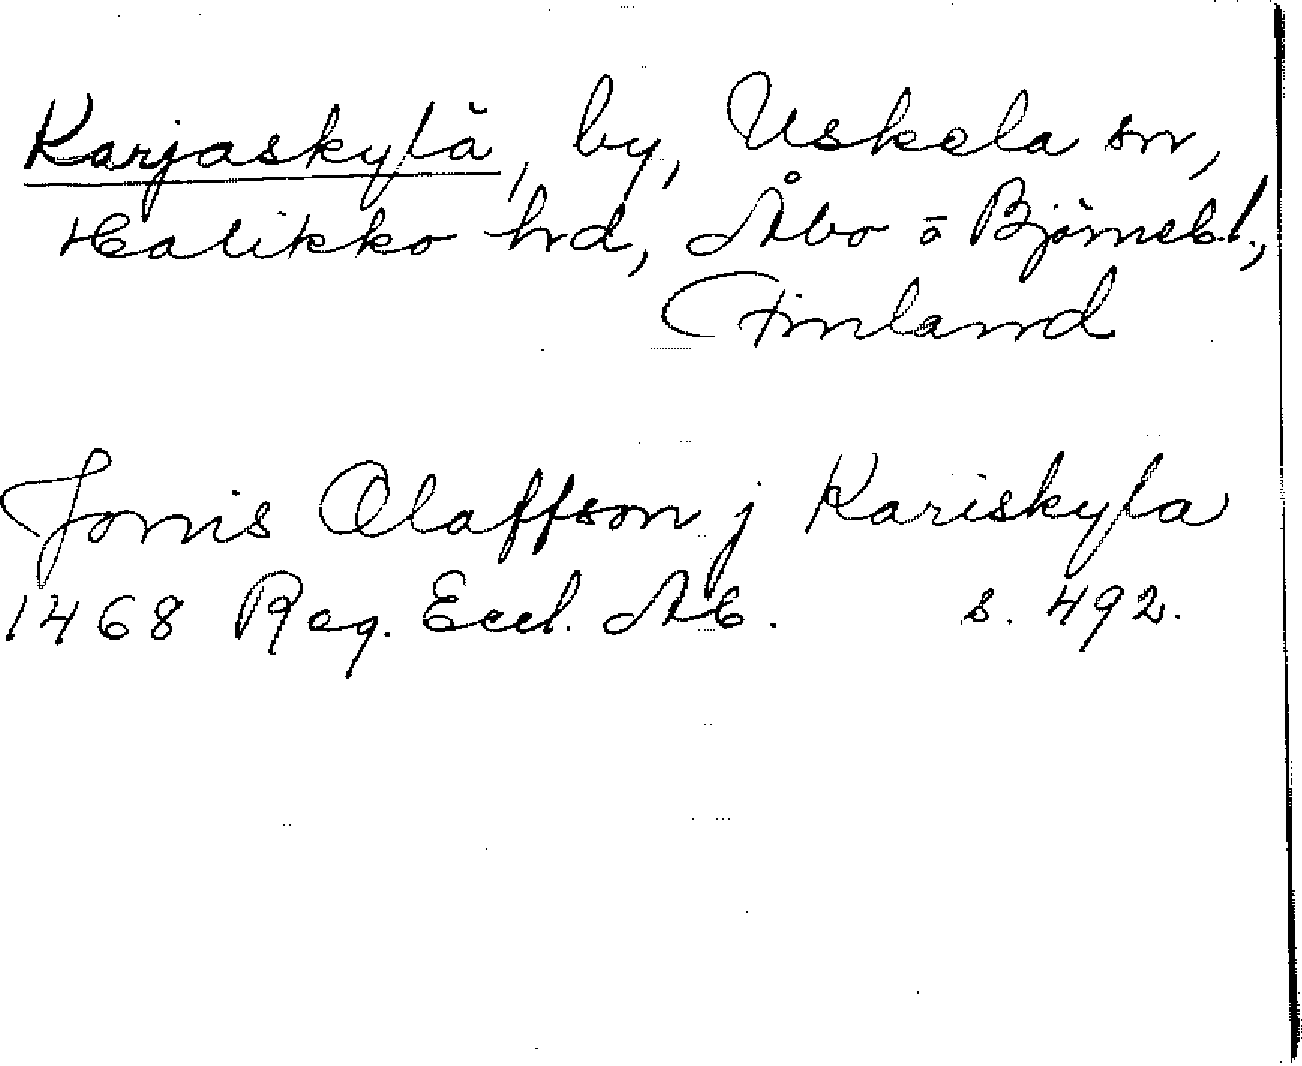 Karjaskylä, by, Uskela sn,
Halikko hrd, Åbo o Björneb.l.,
Finland
Jonis Olaffson j Kariskyla
1468 Reg. Eccl. Ab. s. 492.